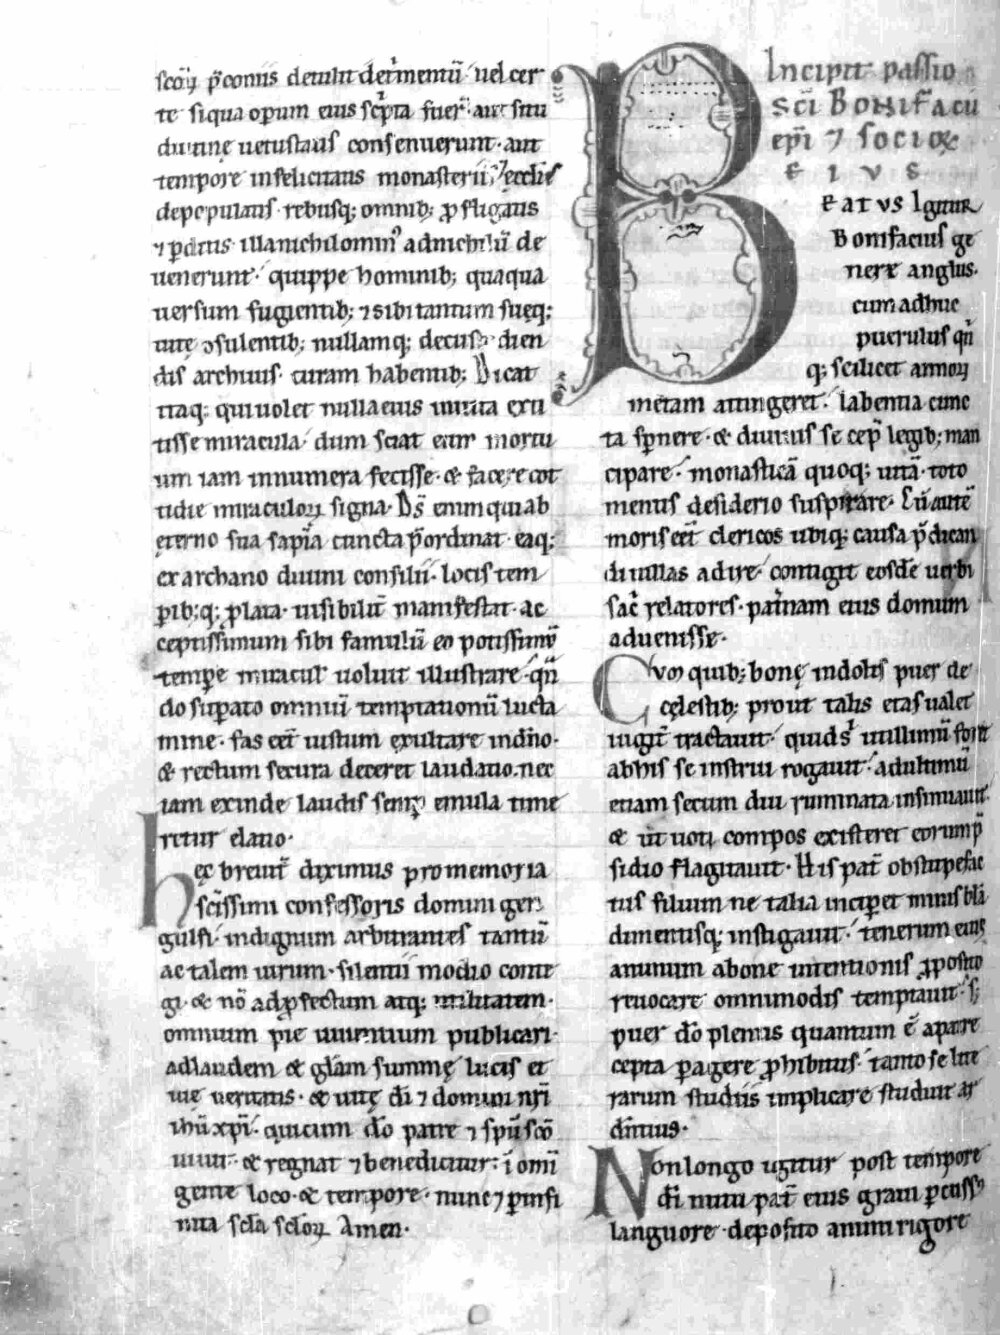 scoꝝ p̄coniis detulit detrimentū uel cer
te siqua operum eius scripta fuer̄ aut situ
diutine uetustatis consenuerunt · aut
tempore infelicitatis monasterii ⁊ ecclie
depopulatis rebusq; omnib; ꝓfligatis
⁊ ꝑditis illa nichilomin᷒ adnichilū de
uenerunt · quippe hominib; quaqua
uersum fugientib; ⁊ sibi tantum sueq;
uitę ꝯsulentib; nullamq; decus
dis archiuis curam habentib; Dicat
itaq; qui uolet nulla eius in uita exti
tisse miracula · dum sciat eum mortu
um iam innumera fecisse · & facere cot
tidie miraculoꝝ signa · D̄s enim qui ab
ęterno sua sapīa cuncta p̄ordinat · eaq;
ex archano diuini consilii · locis tem
ꝑib;q; ꝓlata · uisibilit̄ manifestat · ac
ceptissimum sibi famulū eo potissimū
tempore miracul uoluit illustrare · qn̄
do suꝑato omniū temptationū lucta
mine · fas eēt iustum exultare in dn̄o ·
& rectum secura deceret laudatio · nec
iam exinde laudis semꝑ emula time
retur elatio ·
hęc breuit̄ diximus pro memoria
scīssimi confessoris domini gen
gulfi · indignum arbitrantes tantū
ac talem uirum · silentii modio conte
gi · & nō ad ꝓfectum atq; utilitatem ·
omnium pie uiuentium publicari ·
ad laudem & glām summę lucis et
uię ueritatis · & uitę dī ⁊ domini nr̄i
ihū xp̄i · qui cum dō patre ⁊ sp̄u scō
uiuit · & regnat ⁊ benedicitur · ī omī
gente loco · & tempore · nunc ⁊ ꝑ infi
nita scla scloꝝ Amen ·
Incipit passio
sci Bonifacii
epī ⁊ socioꝝ
eius
Beatus Igitur
Bonifacius ge
nere anglus ·
cum adhuc
puerulus qn̄
q; scilicet annoꝝ
metam attingeret · labentia cunc
ta sꝑnere · & diuinis se cep̄ legib; man
cipare · monasticā quoq; uitā · toto
mentis desiderio suspirare · Cū autē
moris eēt clericos ubiq; causa p̄dican
di uillas adire · contigit eosdē uerbi
sac̄ relatores · pat̄nam eius domum
aduenisse ·
Cum quib; bonę indolis puer de
cęlestib; prout talis etas ualet
iugit̄ tractauit · quid s᷒ utillimū foret
ab his se instrui rogauit · ad ultimū
etiam secum diu ruminata insinuauit
& ut uoti compos existeret eorum p̄
sidio flagitauit · His pat̄ obstupefac
tus filium ne talia inciꝑet minis bla
dimentisq; instigauit · tenerum eius
animum a bone intentionis ꝓposito
reuocare omnimodis temptauit · s;
puer dō plenus quantum ē a patre
cepta ꝑagere ꝓhibitus · tanto se litte
rarum studiis implicare studuit ar
dentius ·
Non longo igitur post tempore
dī nutu pat̄ eius graui ꝑcussus
languore · deposito animi rigore